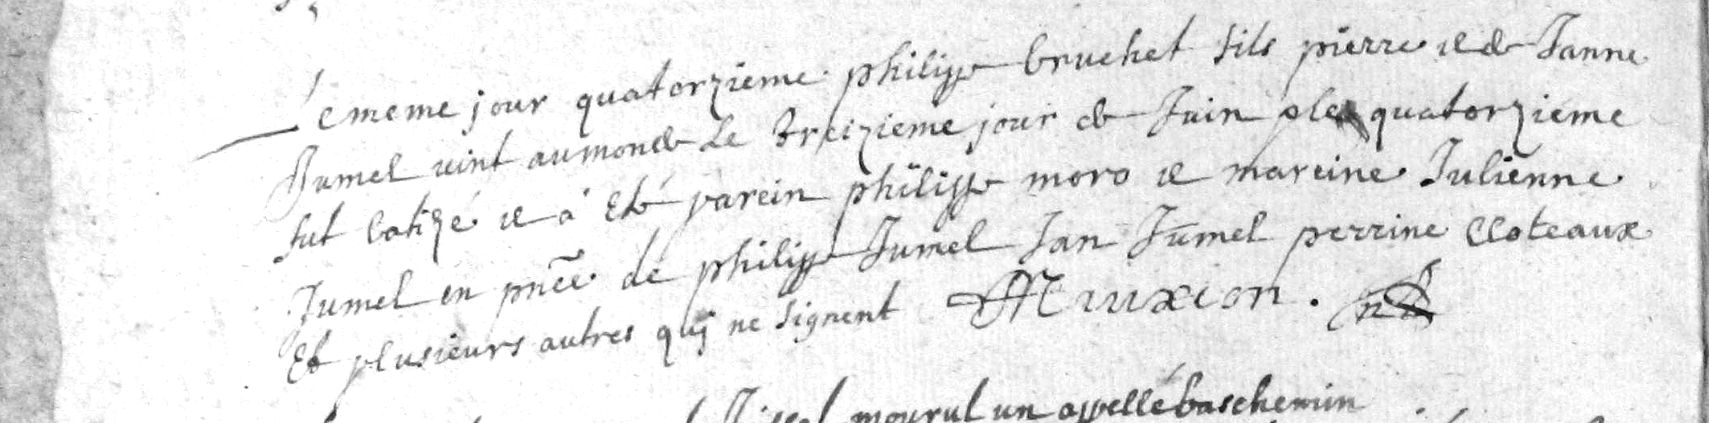 Le meme jour quatorzieme philippe bruchet fils pierre et de Janne
Jumel vint au monde Le Treizieme jour de Juin et le quatorzieme
fut batizé et á Eté parein philippe moro et mareine Julienne
Jumel en pnce de philippe Jumel Jan Jumel perrine Cloteaux
Et plusieurs autres quj ne signent
mourut un appellé baschemin